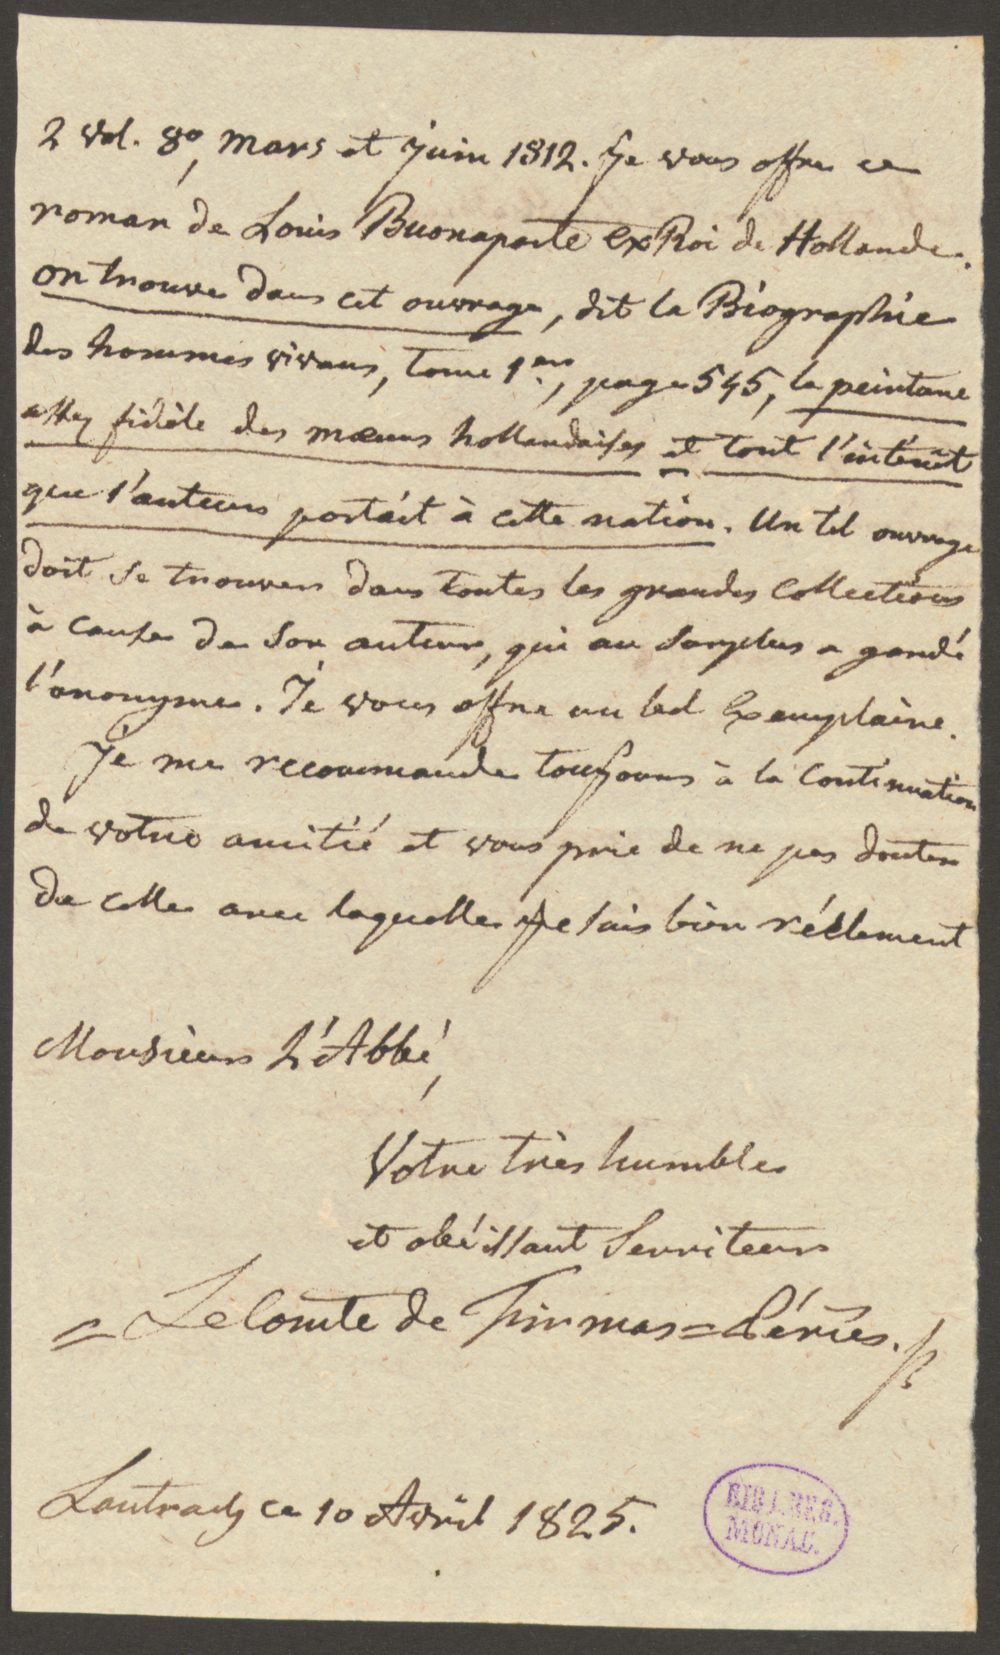 2 vol. 8º, mars et juin 1812. Je vous offre ce
roman de Louis Buonaparte ex Roi de Hollande.
on trouve dans cet ouvrage, dit la Biographie
des hommes vivans, tome 1er, page 545, la peinture
assez fidèle des mœurs hollandaises et tout l'intérêt
que l'auteur portait à cette nation. Un tel ouvrage
doit se trouver dans toutes les grandes Collections
à cause de son auteur, qui au surplus a gardé
l'anonyme. Je vous offre un bel Exemplaire.
Je me recommande toujours à la Continuation
de votre amitié et vous prie de ne pas douter
de celle avec laquelle je suis bien réellement
Monsieur L'Abbé,
Votre très humble
et obéissant Serviteur
= Le Comte de Firmas=Périés.
Lautrach ce 10 Avril 1825.
BIBL. REG.
MONAC.